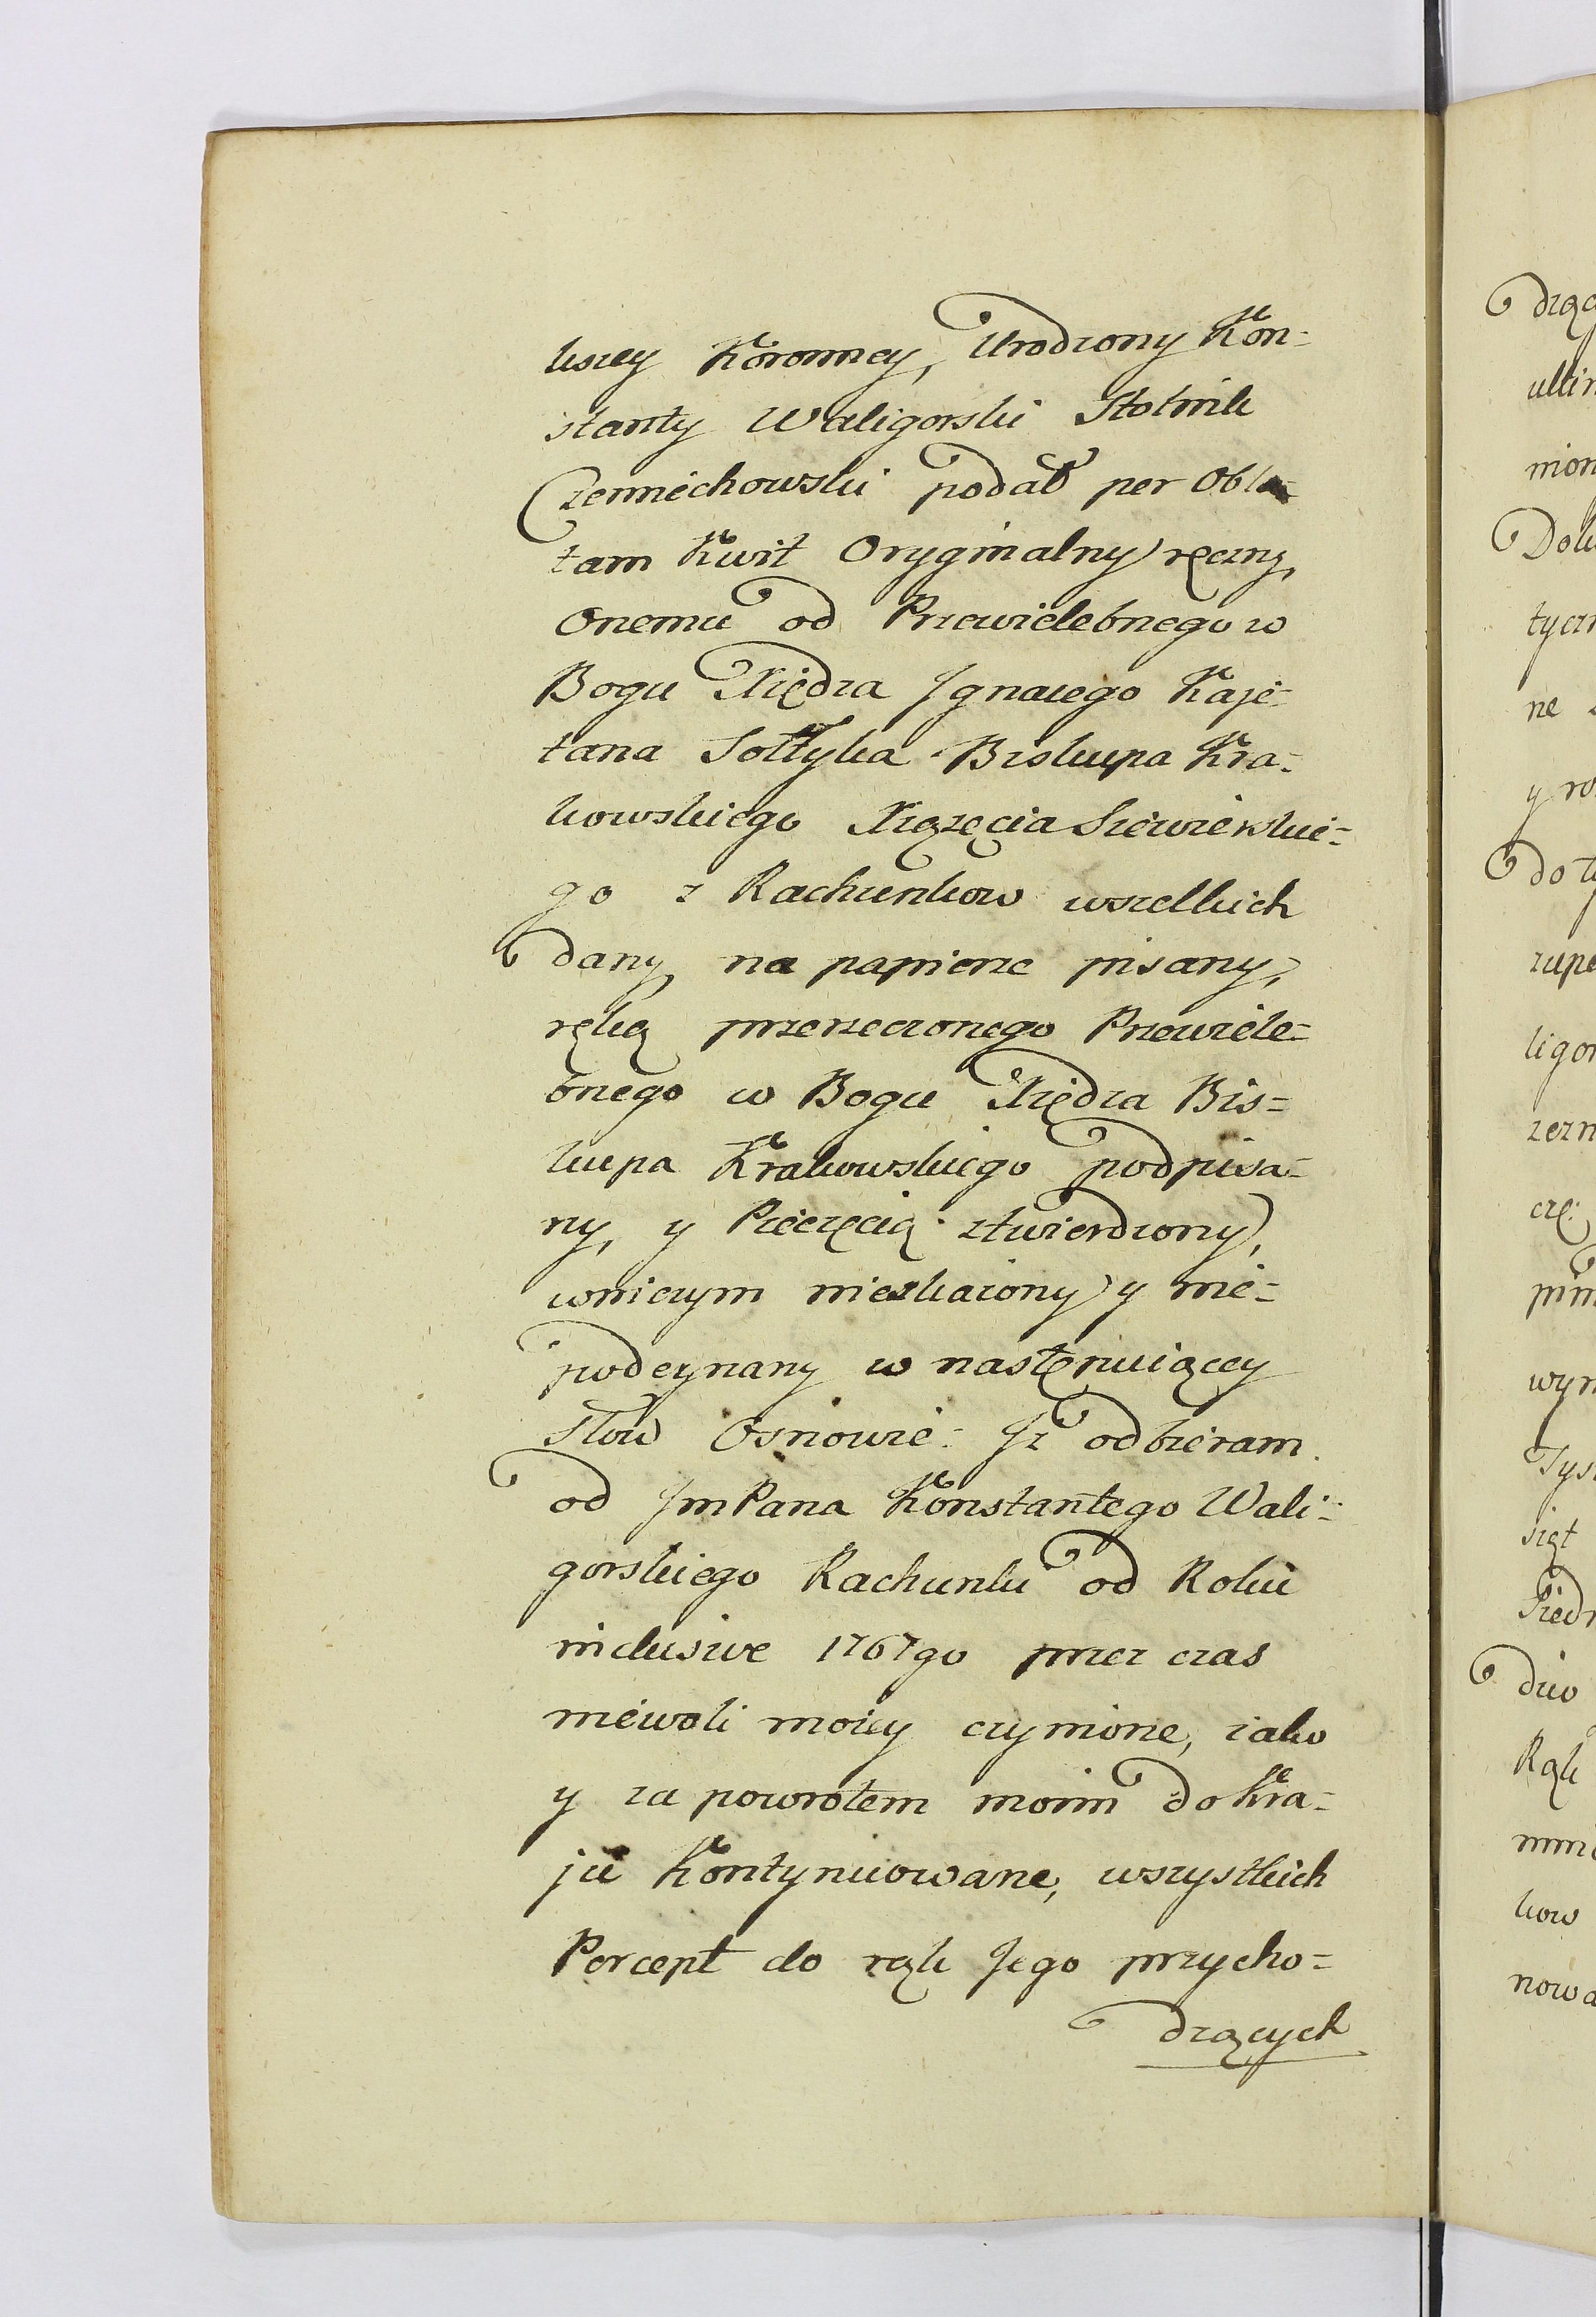 kszey Koronney, Urodzony Kon=
stanty Waligorski Stolnik
Czerniechowski podał per Obla=
tam Kwit Oryginalny ręczny,
Onemu od Przewielebnego w
Bogu Xiędza Jgnacego Kaje=
tana Sołtyka Biskupa Kra=
kowskiego Xiążęcia Siewierskie=
go z Rachunkow wszelkich
dany, na papierze pisany,
ręką przerzeczonego Przewiele=
bnego w Bogu Xiędza Bis=
kupa Krakowskiego podpisa=
ny, y Pieczęcią ztwierdzony,
wniczym nieskażony y nie=
podeyrzany w następuiącey
Słow Osnowie: Jż odbieram
od JmPana Konstantego Wali=
gorskiego Rachunki od Roku
inclusive 1767go przez czas
niewoli moiey czynione, iako
y za powrotem moim do Kra=
ju Kontynuowane, wszystkich
Percept do rąk Jego przycho=
dzących
drzą
ultim
nion
Dok
tyczn
ne
y ro
do t
zupe
ligor
zezn
czę:
pim
wyn
Tysi
siąt
Siedm
dzio
Rąk
mnie
kow
nowa